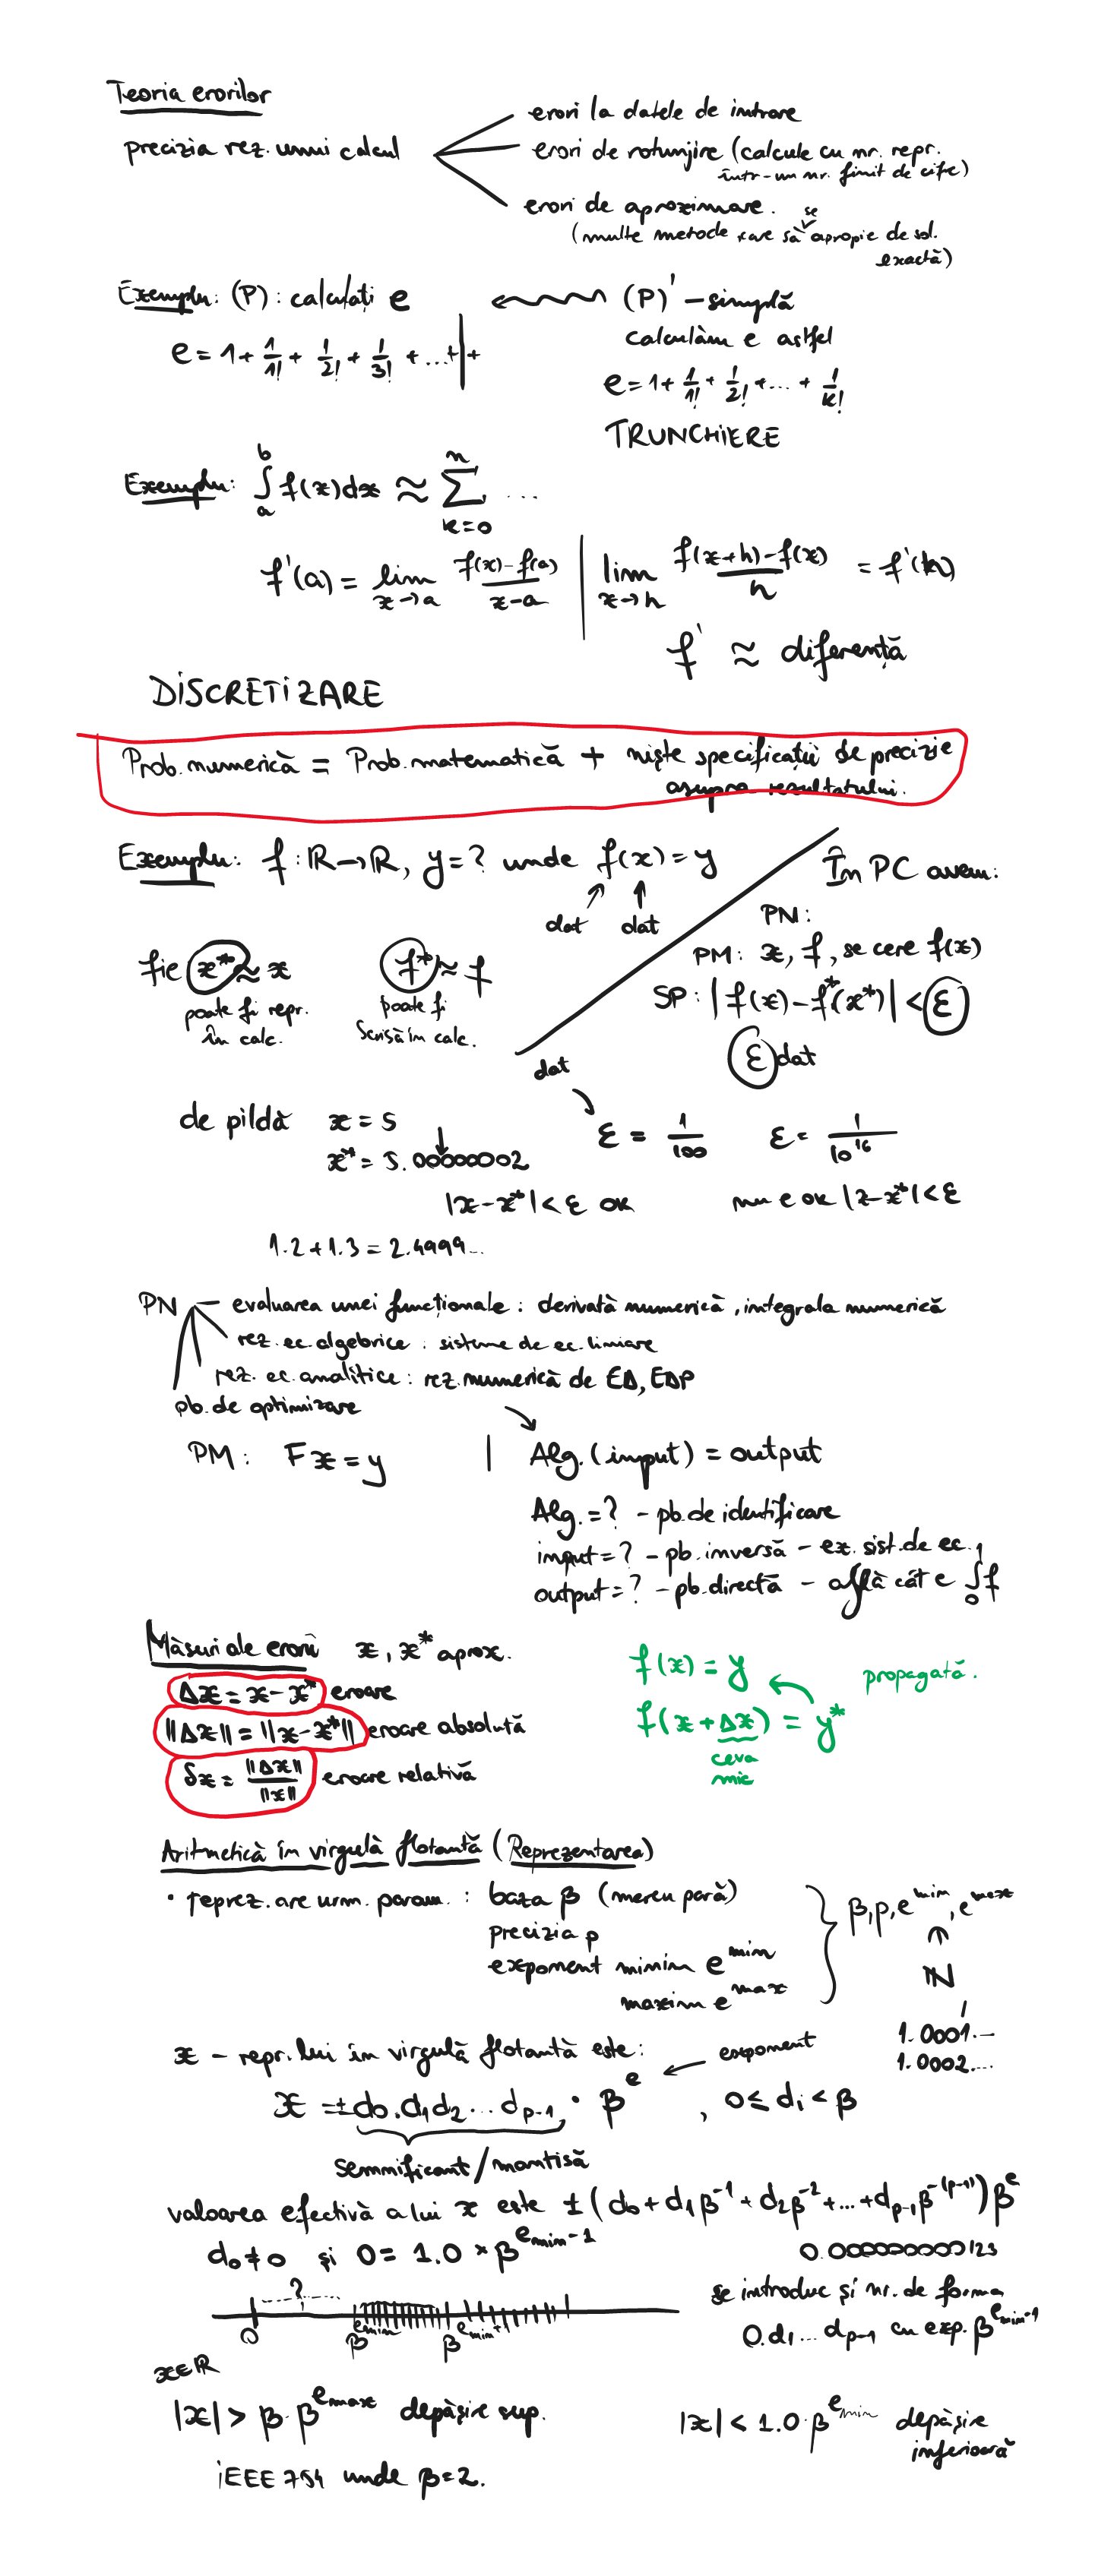 Teoria erorilor
precizia rez. unui calcul
erori la datele de intrare
erori de rotunjire (calcule cu nr. repr.
într-un nr. finit de cifre)
erori de aproximare.
(multe metode care să se apropie de sol.
exactă)
Exemplu: (P): calculați e
(P)' - simplă
calculăm e astfel
e = 1 + 1/1! + 1/2! + 1/3! + ... + | +
e = 1 + 1/1! + 1/2! + ... + 1/k!
TRUNCHIERE
Exemplu: ∫_a^b f(x)dx ≈ Σ_{k=0}^n ...
f'(a) = lim_{x→a} (f(x)-f(a))/(x-a) | lim_{x→h} (f(x+h)-f(x))/h = f'(h)
f' ≈ diferență
DISCRETIZARE
Prob. numerică = Prob. matematică + niște specificații de precizie
asupra rezultatului.
Exemplu: f: ℝ→ℝ, y = ? unde f(x) = y
dat dat
În PC avem:
PN:
PM: x, f, se cere f(x)
SP: |f(x) - f*(x*)| < ε
ε dat
fie x* ≈ x
poate fi repr.
în calc.
f* ≈ f
poate fi
scrisă în calc.
dat
de pildă x = 5
x* = 5.00000002
ε = 1/100
ε = 1/10^16
|x - x*| < ε ok
nu e ok |x - x*| < ε
1.2 + 1.3 = 2.4999...
PN - evaluarea unei funcționale: derivată numerică, integrala numerică
rez. ec. algebrice: sisteme de ec. liniare
rez. ec. analitice: rez. numerică de ED, EDP
pb. de optimizare
PM: Fx = y | Alg. (input) = output
Alg. = ? - pb. de identificare
input = ? - pb. inversă - ex. sist. de ec.
output = ? - pb. directă - află cât e ∫_0^1 f
Măsuri ale erorii x, x* aprox.
Δx = x - x* eroare
||Δx|| = ||x - x*|| eroare absolută
δx = ||Δx||/||x|| eroare relativă
f(x) = y
propagată.
f(x + Δx) = y*
ceva
mic
Aritmetică în virgulă flotantă (Reprezentarea)
• reprez. are urm. param.: baza β (mereu pară)
precizia p
exponent minim e^min
maxim e^max
β, p, e^min, e^max
∈
ℕ
1.0001...
1.0002...
x - repr. lui în virgulă flotantă este:
exponent
x = ± d0.d1d2...dp-1 · β^e, 0 ≤ di < β
semnificant/mantisă
valoarea efectivă a lui x este ±(d0 + d1β^-1 + d2β^-2 + ... + dp-1β^-(p-1))β^e
d0 ≠ 0 și 0 = 1.0 × β^{emin-1}
0.0000000000123
se introduc și nr. de forma
0.d1...dp-1 cu exp. β^{emin-1}
?
0 β^{emin} β^{emin+1}
x∈ℝ
|x| > β·β^{emax} depășire sup.
|x| < 1.0·β^{emin} depășire
inferioară
IEEE 754 unde β = 2.